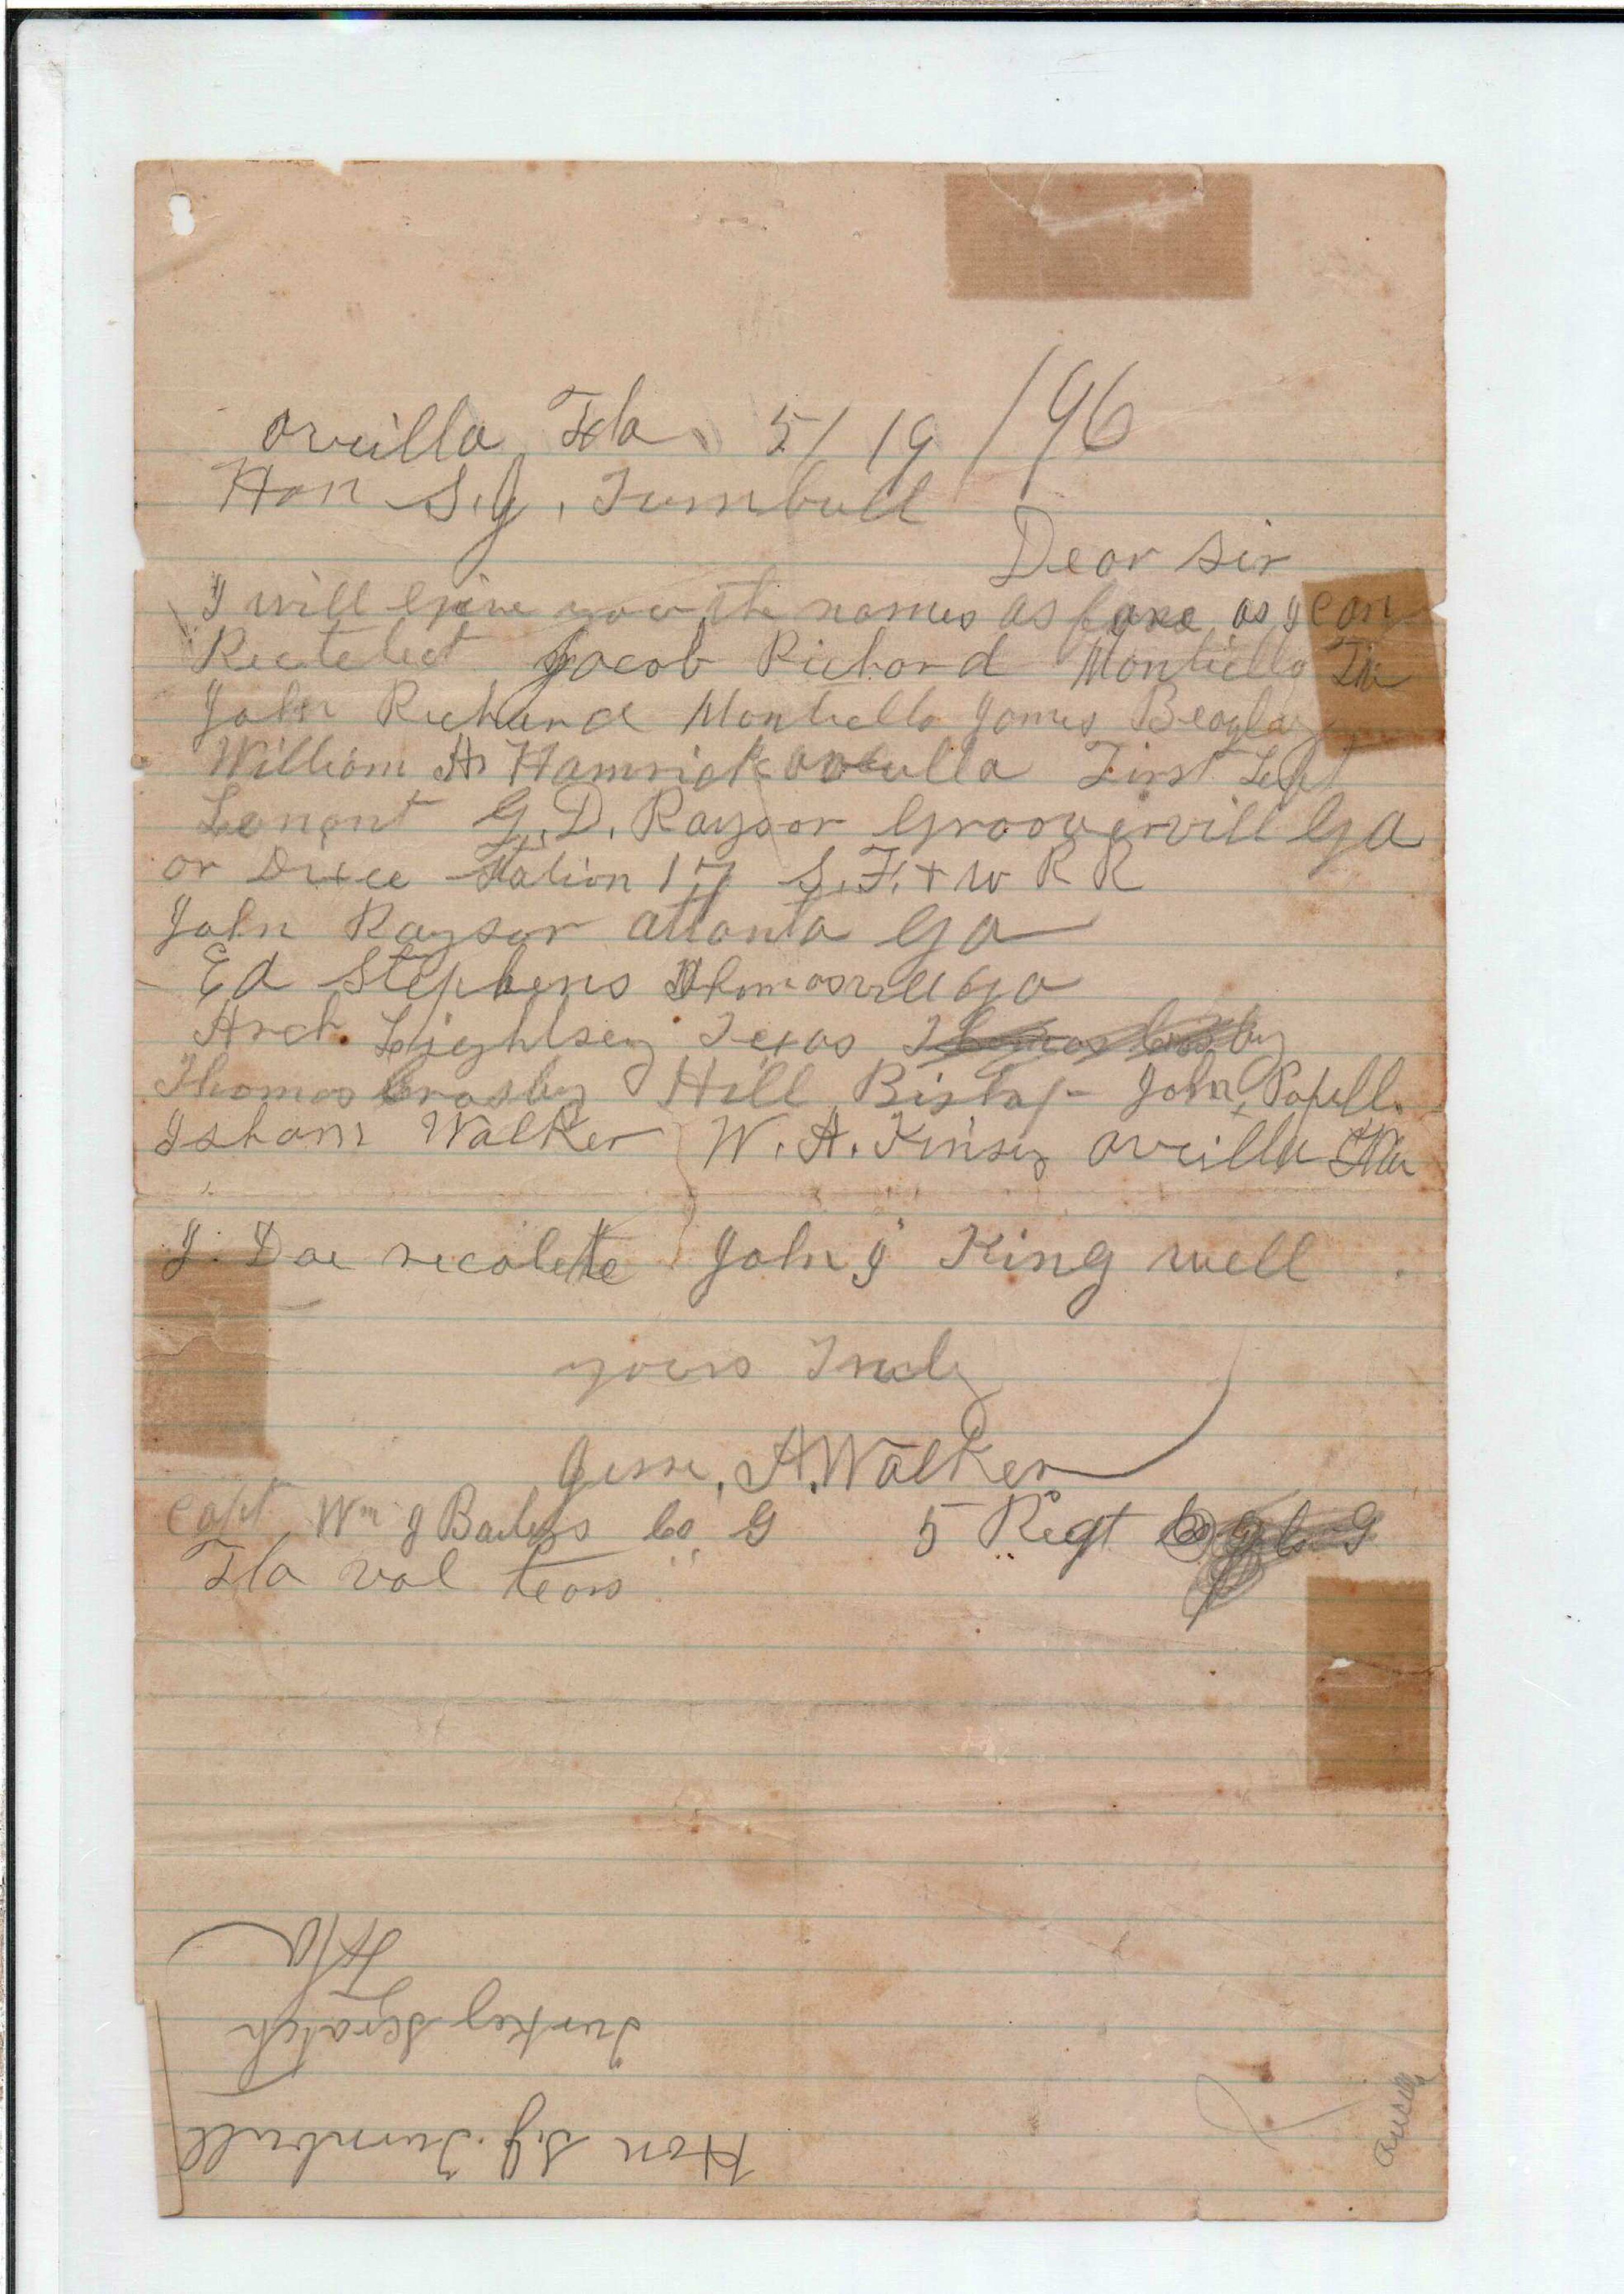 Orvilla Fla 5/19/96
Hon S.J. Turnbull
Dear Sir
I will give you the names as fare as I can
Recctelect Jacob Richard Monticello Fla
John Richard Monticello James Beazley
William H. Hamrick First Left
Lenant G. D. Raysor Groovervill Ga
or Dixce Station 17 S.F. + W R R
John Raysor Atlanta Ga
Ed Stephens Thomasvill Ga
Arch. Lightsey Texas
Thomas Crosby Hill Bishop John Popell.
Isham Walker W. A. Kinsey Orvilla Fla
I. Doe recolete John J King well
yours Truly
Jesse. A. Walker
Capt Wm J Baileys Co G 5 Regt
Fla vol tears
Hon S.J. Turnbull
Turkey Scratch
Fla